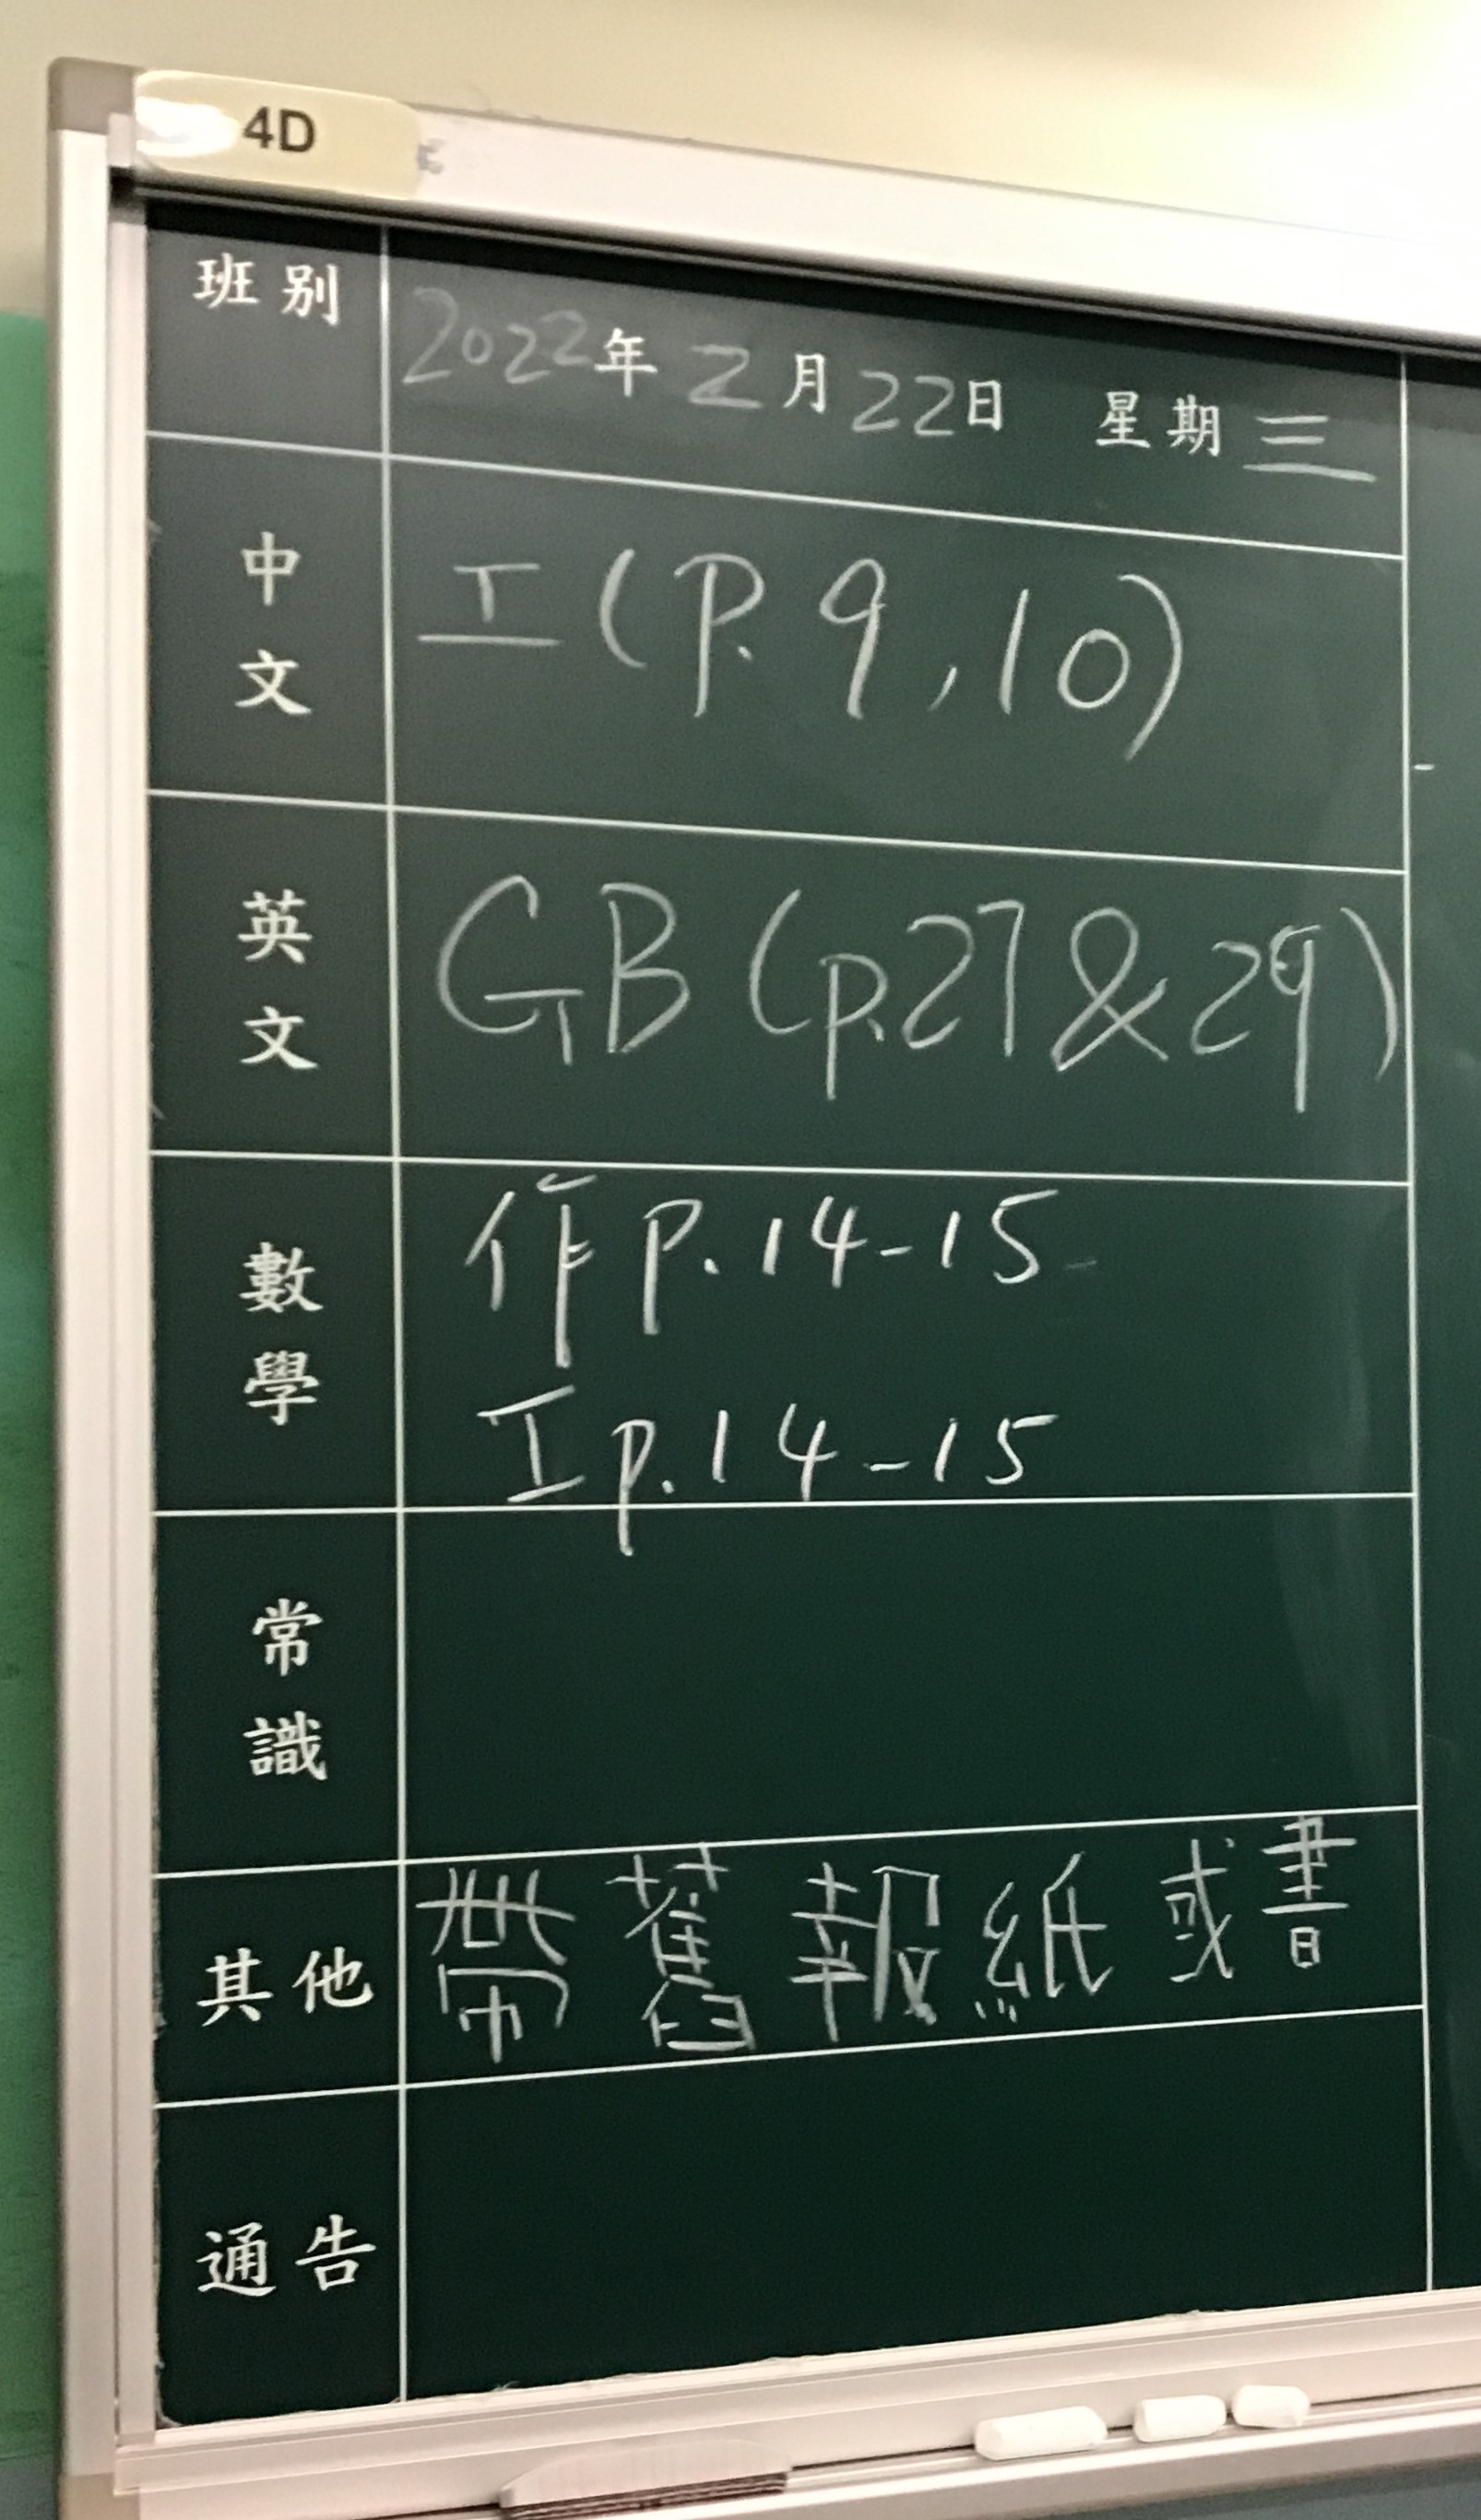 4D
班別 2022年2月22日 星期三
中文 工(P.9,10)
英文 GB (p.27 & 29)
數學 作 p.14-15
工 p.14-15
常識
其他 帶舊報紙或書
通告